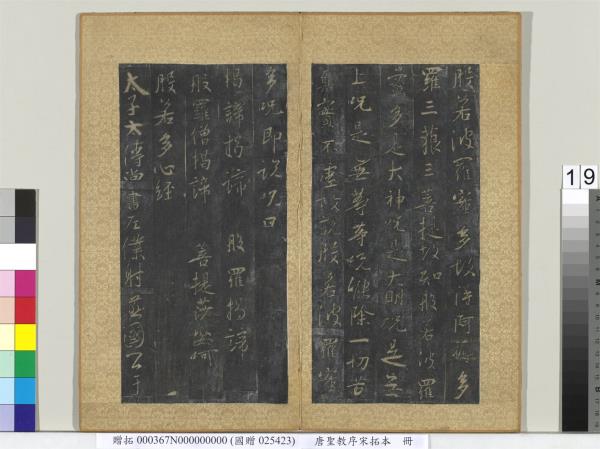 般若波羅蜜多故得阿耨多
羅三藐三菩提故知般若波羅
蜜多是大神咒是大明咒是無
上咒是無等等咒能除一切苦
真實不虛故說般若波羅蜜
多咒即說咒曰
揭諦揭諦 般羅揭諦
般羅僧揭諦 菩提莎婆呵
般若多心經
太子太傅尚書左僕射燕國公于
19
贈拓 000367N000000000 (國贈 025423) 唐聖教序宋拓本 冊